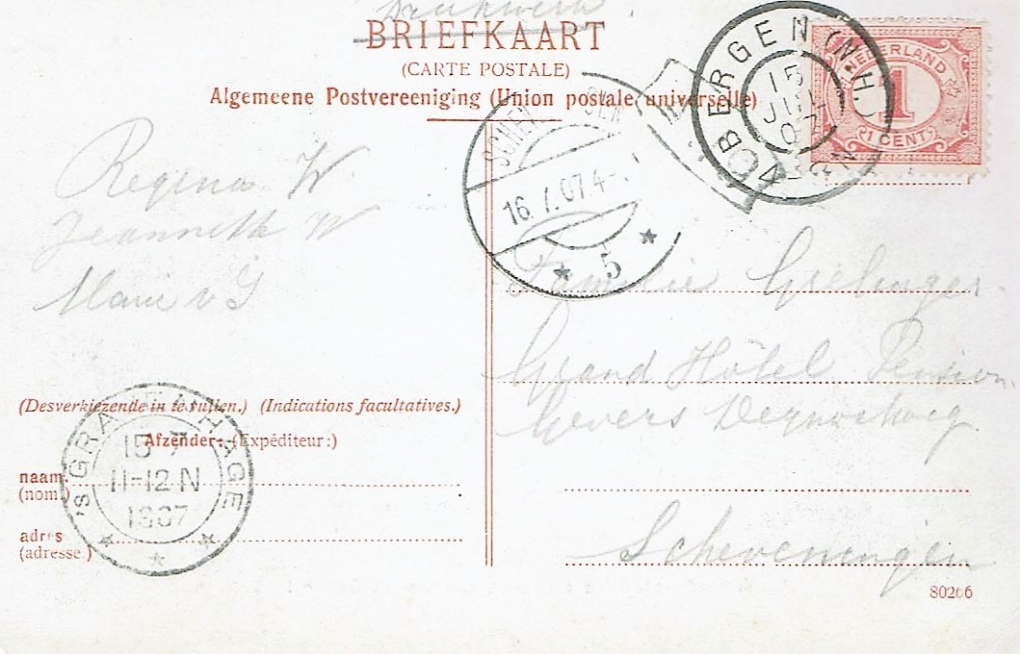 Drukwerk.
BRIEFKAART
(CARTE POSTALE)
Algemeene Postvereeniging (Union postale universelle)
NEDERLAND
1
1 CENT
BERGEN (N.H.)
15 JUL 07
4-8N
SCHEVENINGEN
16.7.07 4-
5
Regina W.
Jeannette W
v S
Familie
Grand Hôtel Pension
Gevers Deynootweg
Scheveningen
(Desverkiezende in te vullen.) (Indications facultatives.)
Afzender: (Expéditeur:)
naam
(nom.)
adres
(adresse.)
'S GRAVENHAGE
15-7
11-12 N
1907
80266